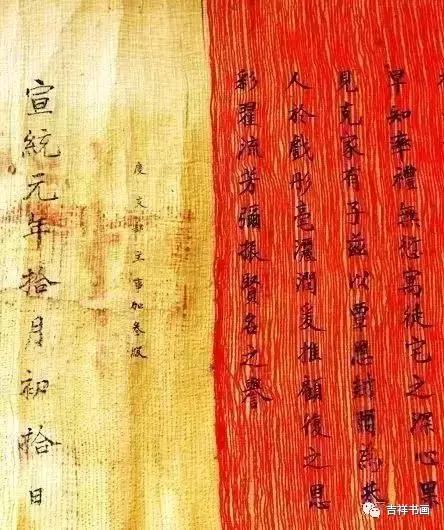 早知率禮無愆寓徙宅之深心果
見克家有子茲以覃恩封爾為恭
人於戲彤毫灑潤爰推顧復之恩
彩翟流芳彌振賢名之譽
度支部主事加叁級
宣統元年拾月初拾日
吉祥书画